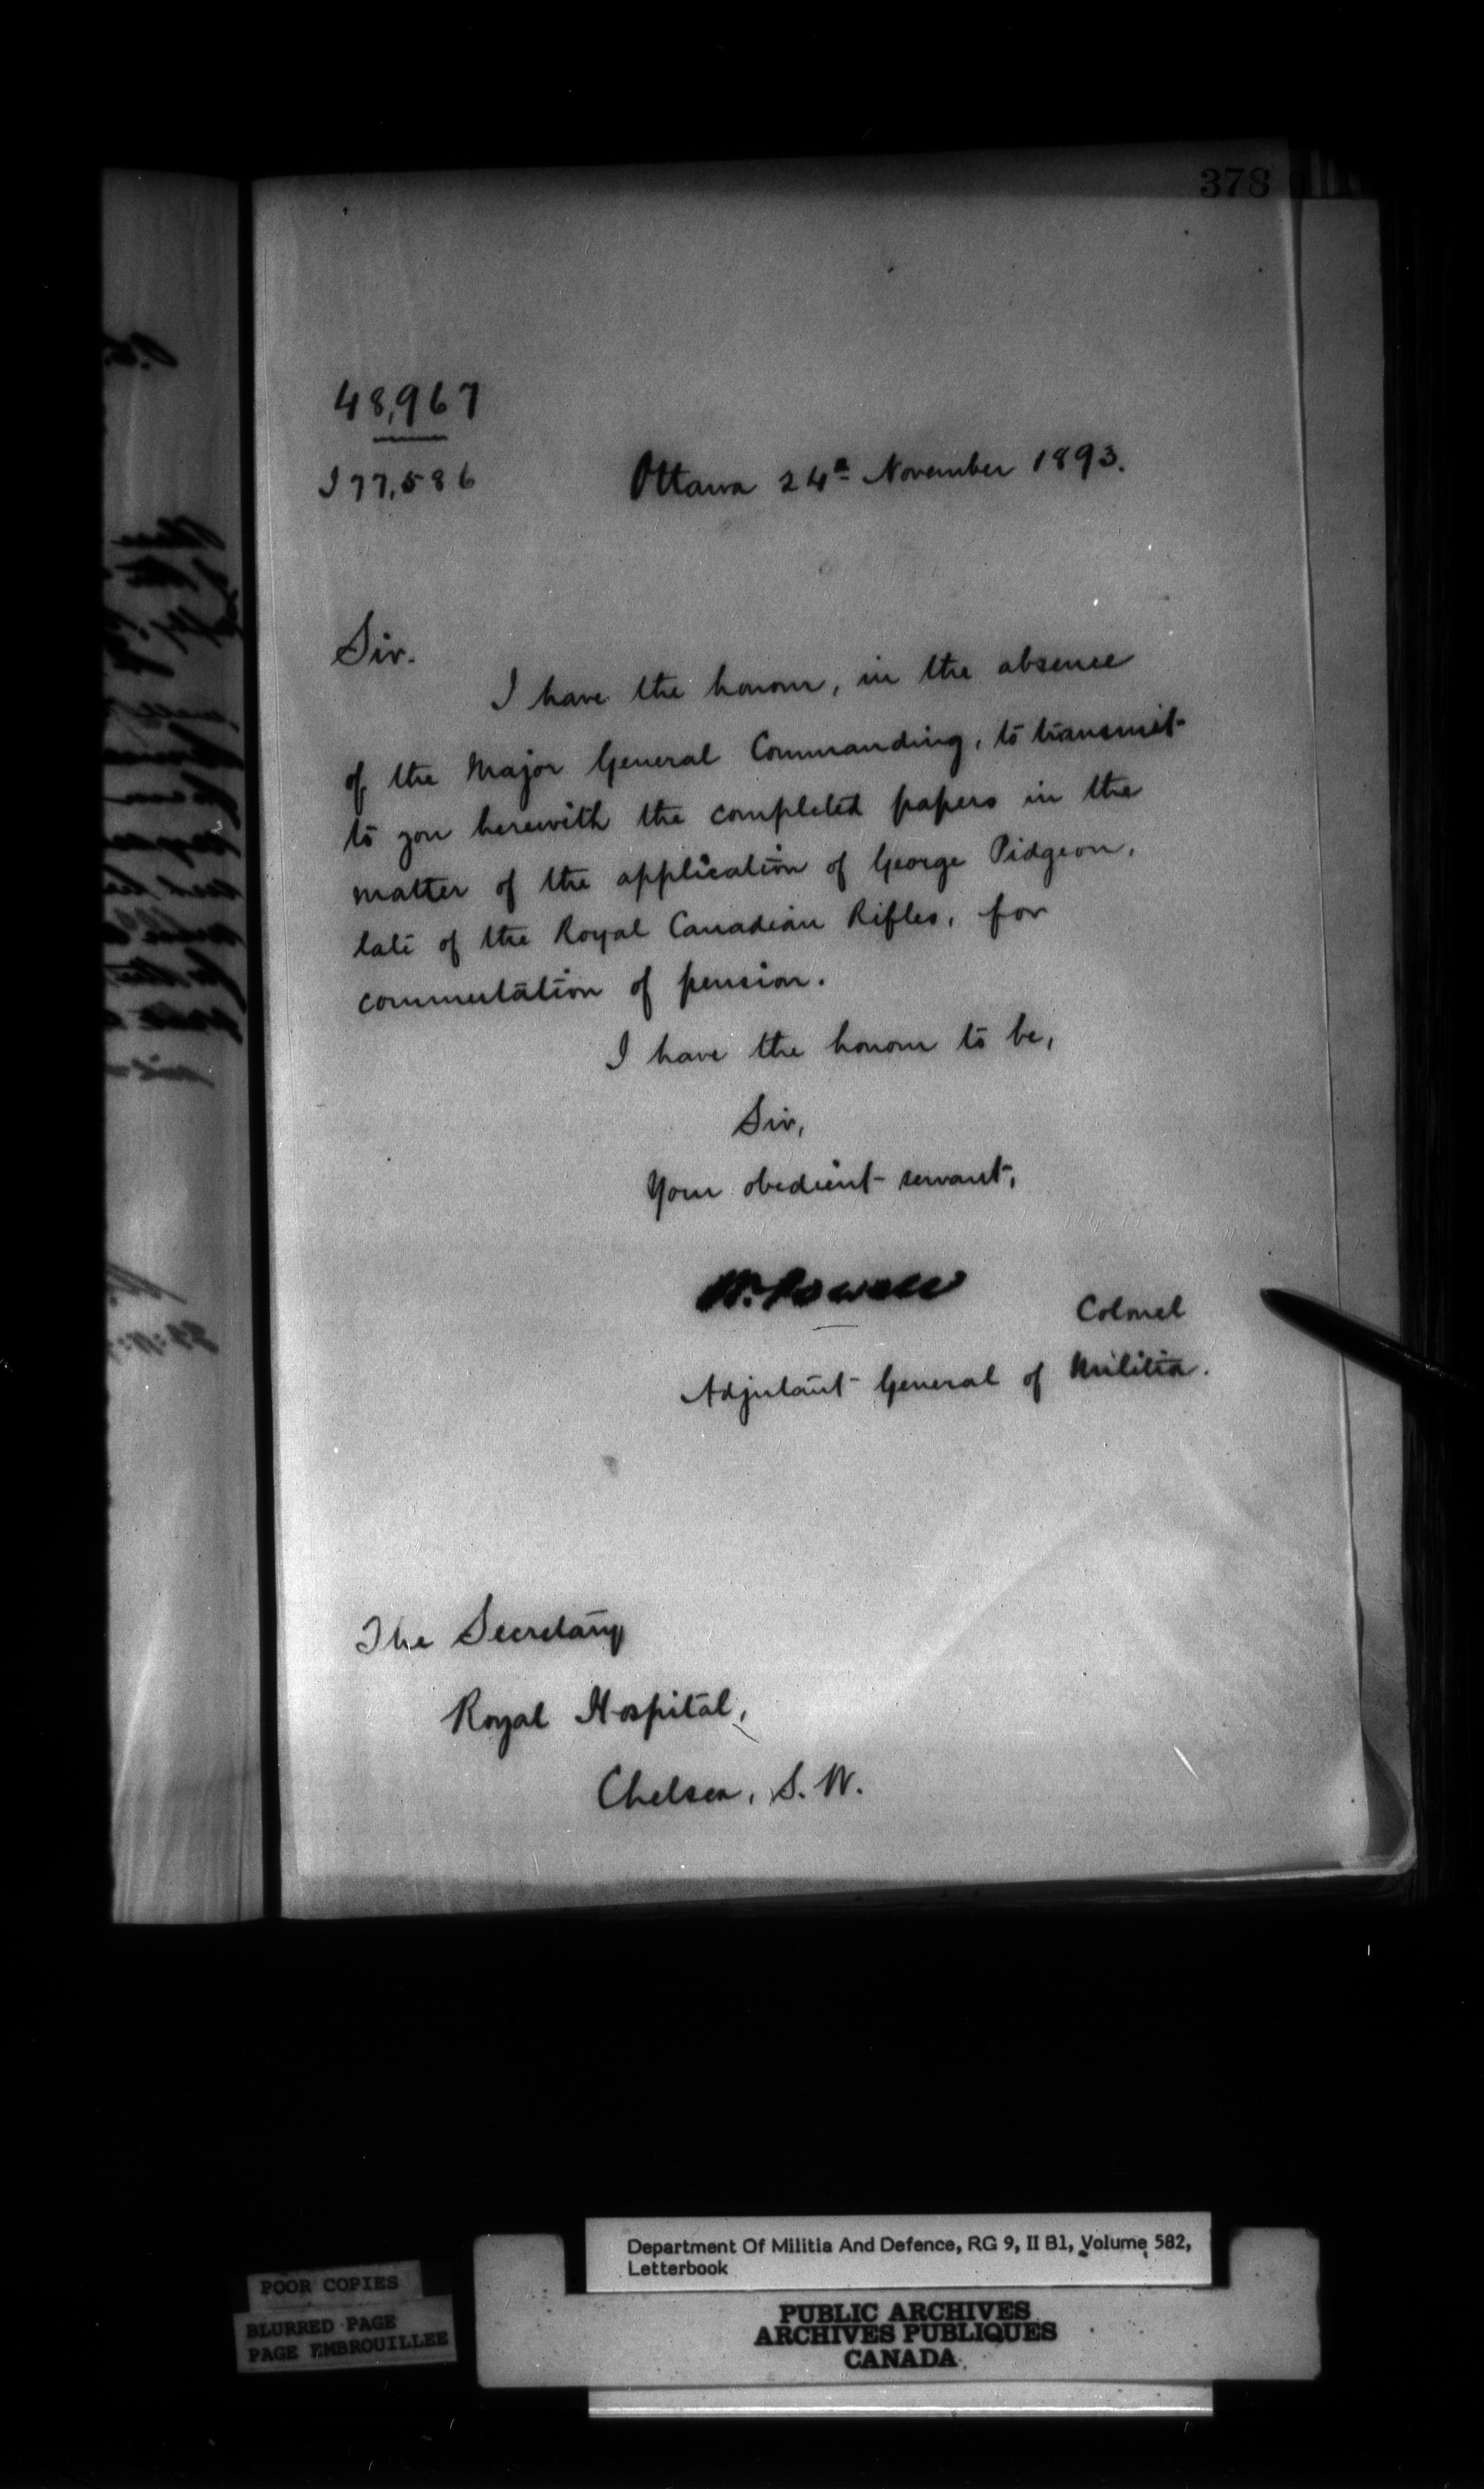 378
48,967
J 77,586
Ottawa 24th November 1893.
Sir.
I have the honour, in the absence
of the Major General Commanding, to transmit
to you herewith the completed papers in the
matter of the application of George Pidgeon,
late of the Royal Canadian Rifles, for
commutation of pension.
I have the honour to be,
Sir,
Your obedient servant,
W. Powell
Colonel
Adjutant General of Militia.
The Secretary
Royal Hospital,
Chelsea, S.W.
Department Of Militia And Defence, RG 9, II B1, Volume 582,
Letterbook
POOR COPIES
BLURRED PAGE
PAGE EMBROUILLEE
PUBLIC ARCHIVES
ARCHIVES PUBLIQUES
CANADA